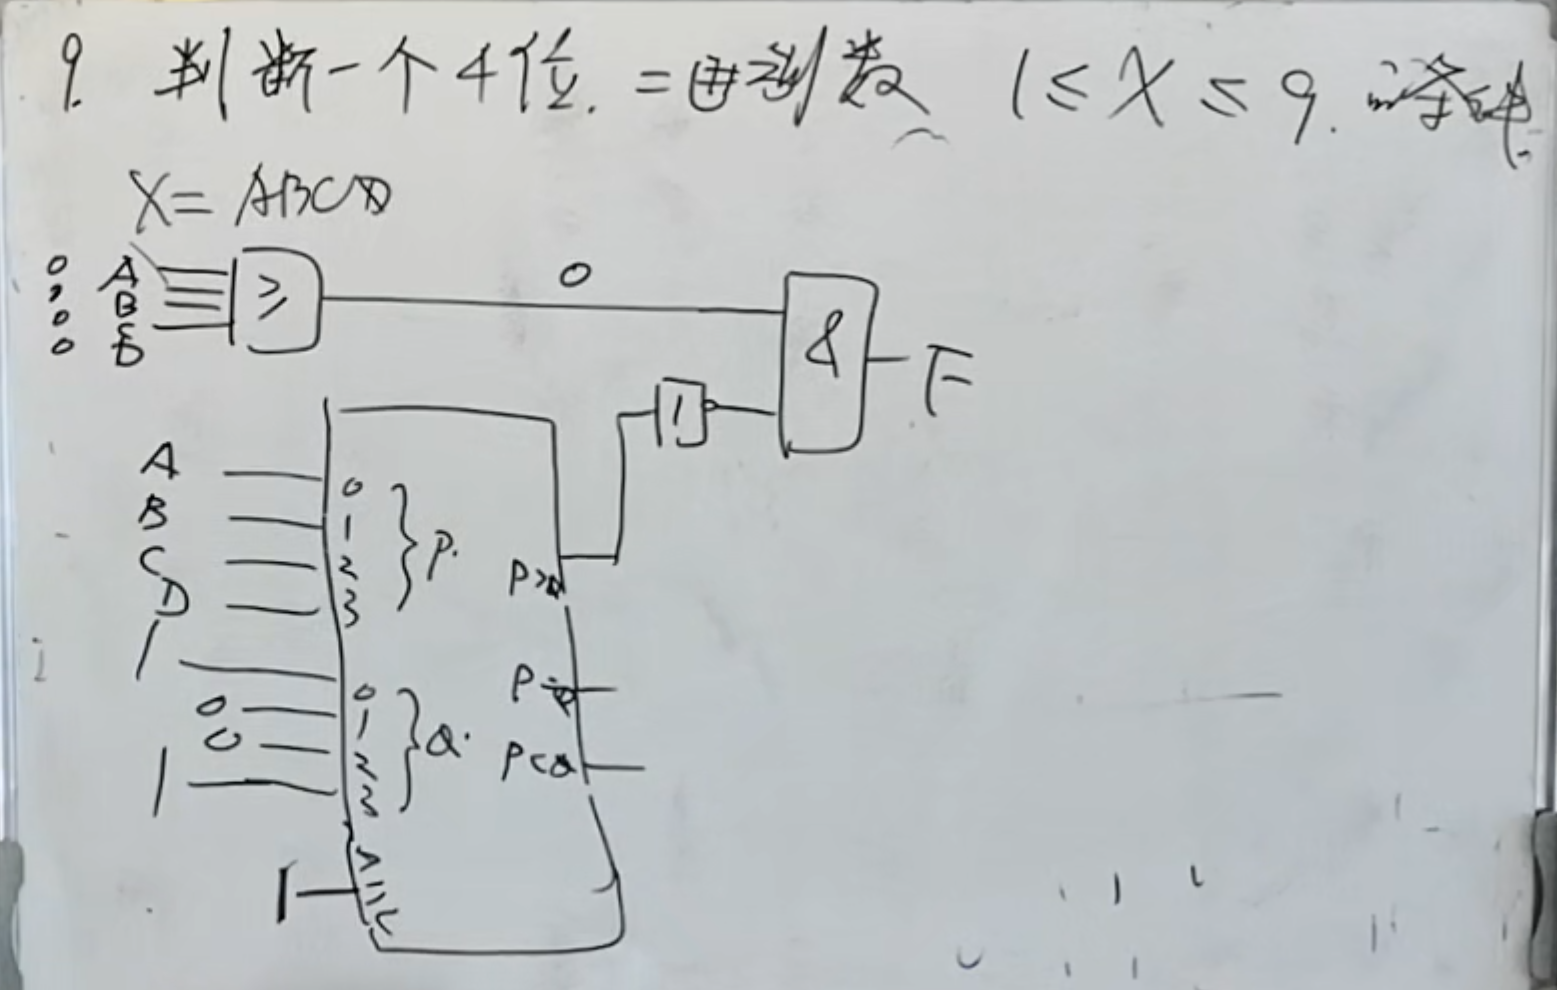 9. 判断一个4位.二进制数 1≤X≤9. 的条件.
X= ABCD
0 A
B
0 C
0 D
≥
0
&
F
1
A 0
B 1
C 2
D 3
} P.
P>Q
1
0 0
0 1
2
1 3
} Q.
P=Q
P<Q
1
>
=
<